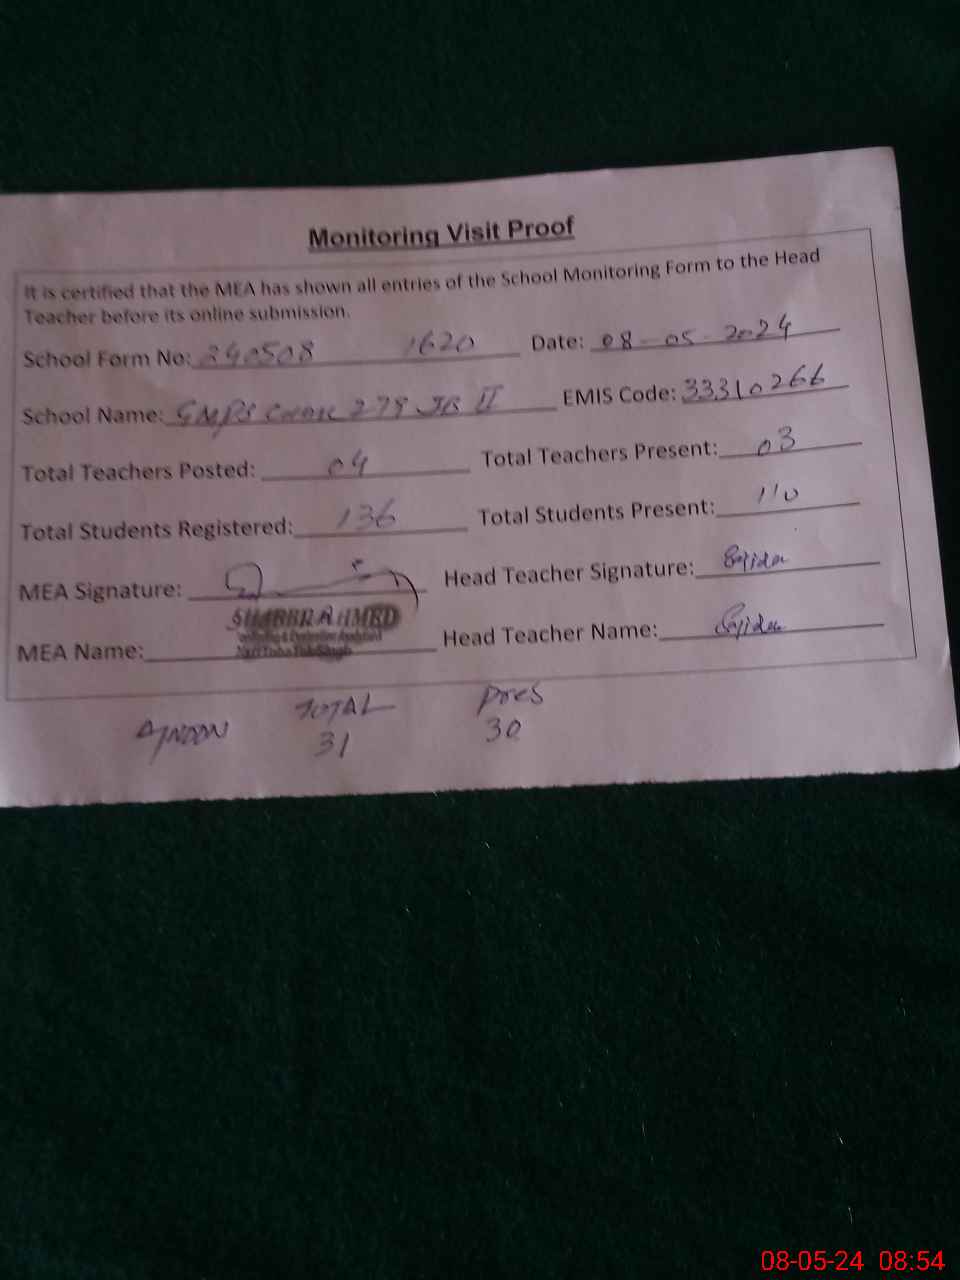 Monitoring Visit Proof
It is certified that the MEA has shown all entries of the School Monitoring Form to the Head
Teacher before its online submission.
School Form No: 240508 1620 Date: 08-05-2024
School Name: GMPS 279 JB II EMIS Code: 33310266
Total Teachers Posted: 04 Total Teachers Present: 03
Total Students Registered: 136 Total Students Present: 110
MEA Signature: Head Teacher Signature: Sajida
MEA Name: SHABBIR AHMED Head Teacher Name: Sajida
TOTAL Pres
31 30
08-05-24 08:54